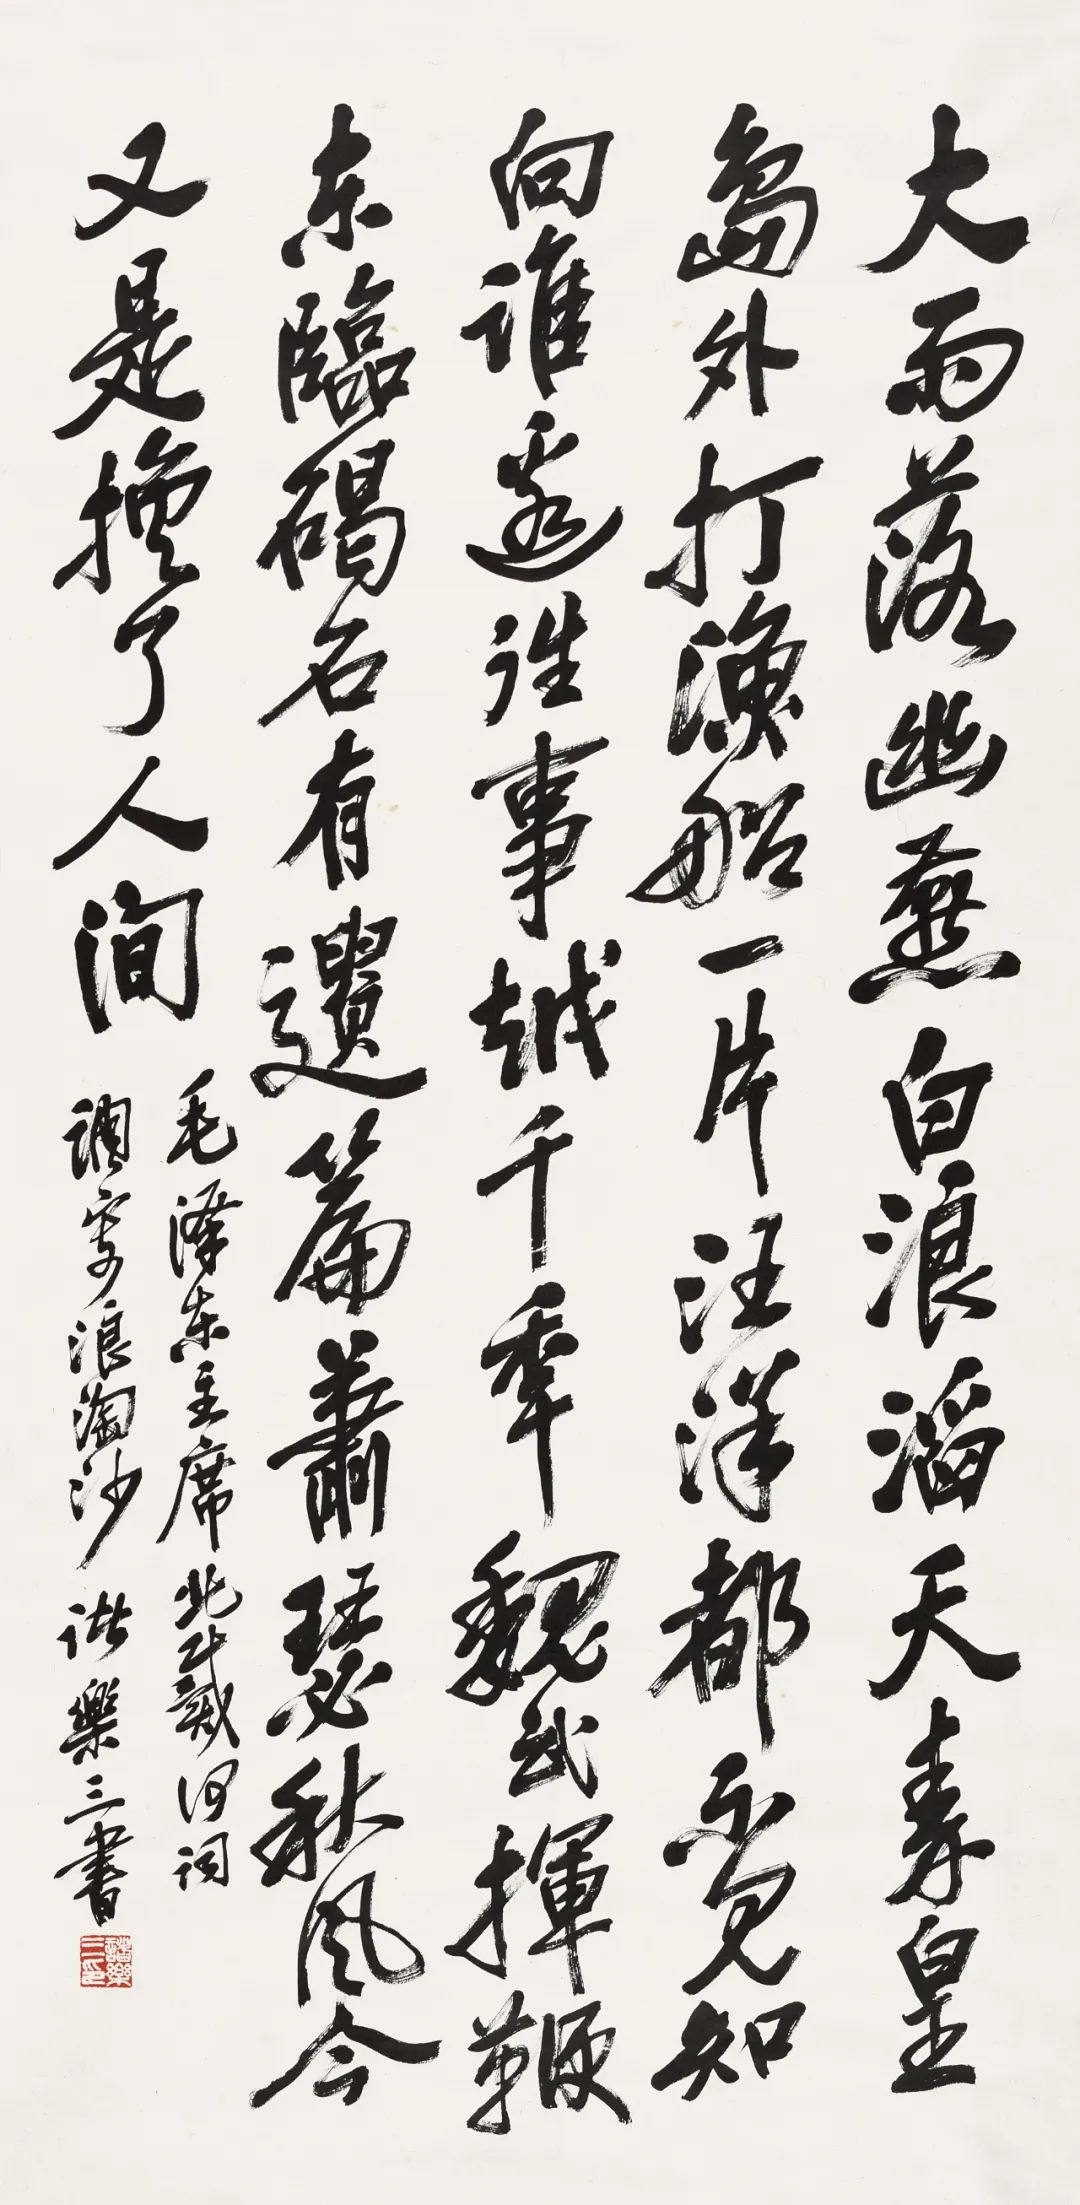 大雨落幽燕白浪滔天秦皇
島外打漁船一片汪洋都不見知
向谁邊往事越千年魏武揮鞭
东臨碣石有遺篇蕭瑟秋风今
又是换了人间
毛泽东主席北戴河词
调寄浪淘沙 诸樂三書
諸樂三印